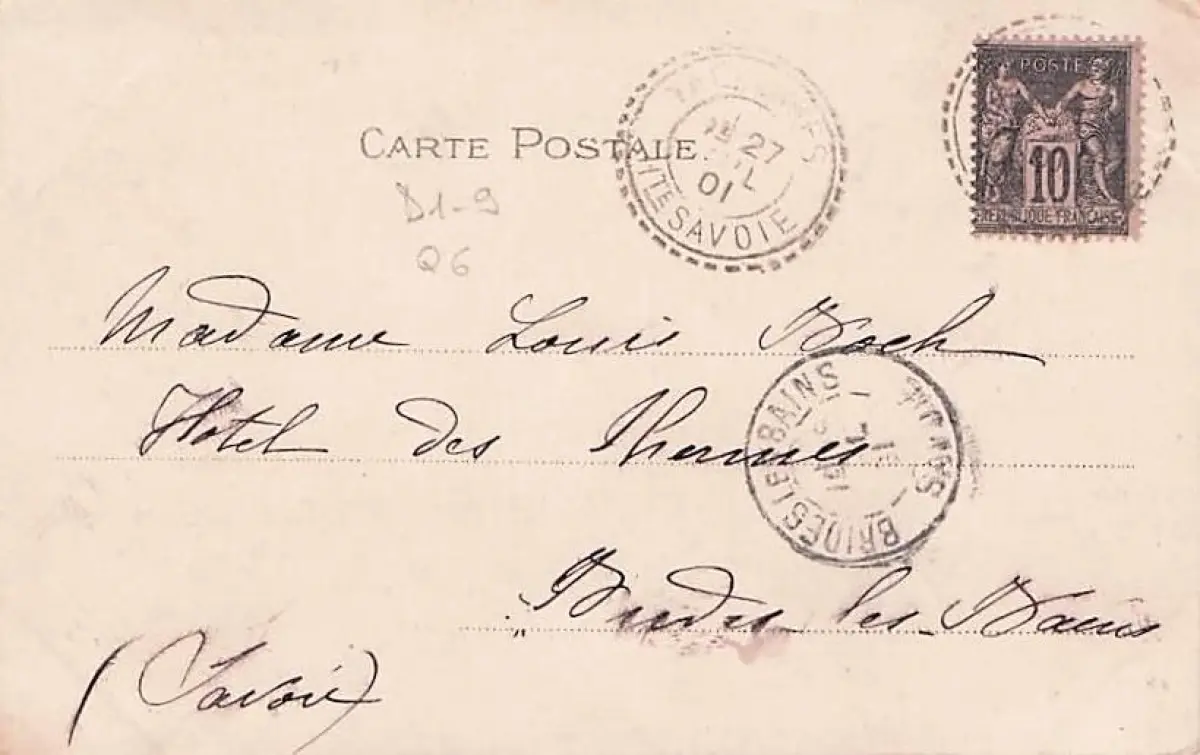 POSTE
10
REPUBLIQUE FRANÇAISE
CARTE POSTALE
27
01
HTE SAVOIE
D1-9
Q6
Madame Louis Koch
Hotel des Thermes
BRIDES LES BAINS
SAVOIE
Brides les Bains
(Savoie)